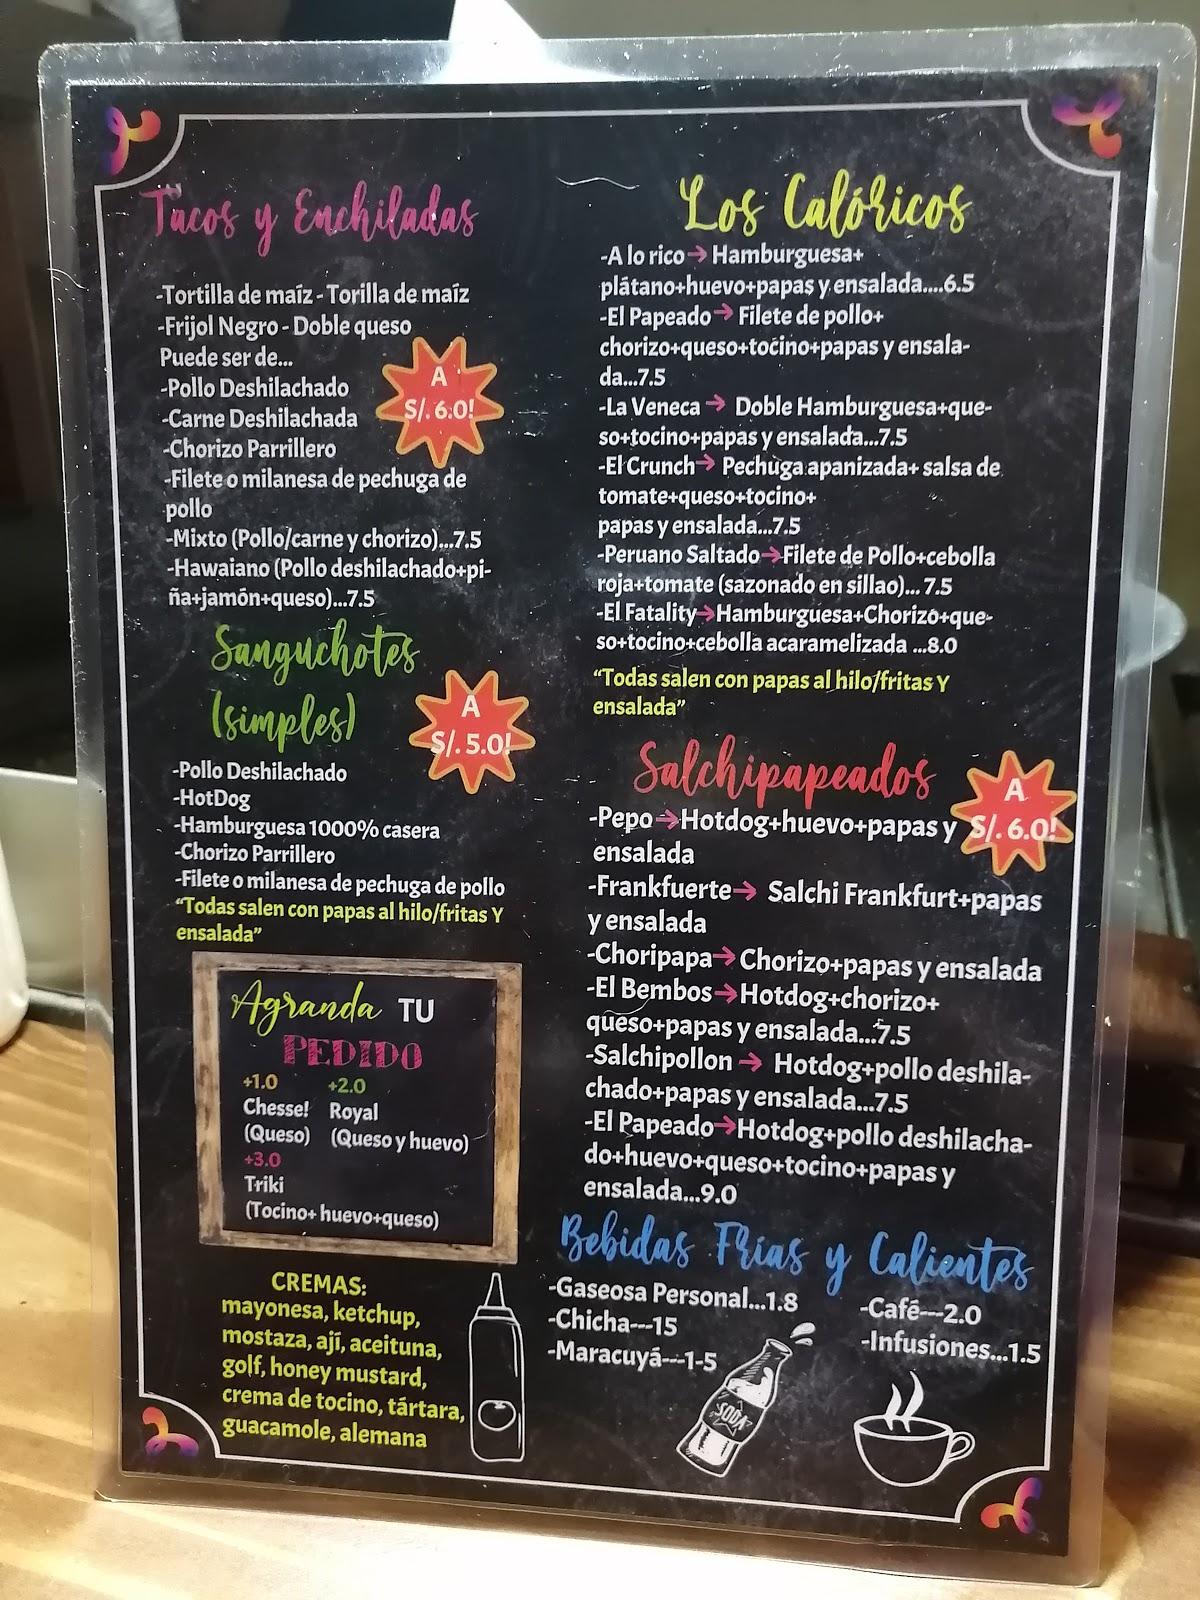 Tacos y Enchiladas
-Tortilla de maíz - Torilla de maíz
-Frijol Negro - Doble queso
Puede ser de...
-Pollo Deshilachado
-Carne Deshilachada
-Chorizo Parrillero
-Filete o milanesa de pechuga de
pollo
-Mixto (Pollo/carne y chorizo)...7.5
-Hawaiano (Pollo deshilachado+pi-
ña+jamón+queso)...7.5
A
S/. 6.0!
Sanguchotes
(simples)
A
S/. 5.0!
-Pollo Deshilachado
-HotDog
-Hamburguesa 1000% casera
-Chorizo Parrillero
-Filete o milanesa de pechuga de pollo
“Todas salen con papas al hilo/fritas Y
ensalada”
Agranda TU
PEDIDO
+1.0 +2.0
Chesse! Royal
(Queso) (Queso y huevo)
+3.0
Triki
(Tocino+ huevo+queso)
CREMAS:
mayonesa, ketchup,
mostaza, ají, aceituna,
golf, honey mustard,
crema de tocino, tártara,
guacamole, alemana
Los Calóricos
-A lo rico→ Hamburguesa+
plátano+huevo+papas y ensalada....6.5
-El Papeado→ Filete de pollo+
chorizo+queso+tocino+papas y ensala-
da...7.5
-La Veneca → Doble Hamburguesa+que-
so+tocino+papas y ensalada...7.5
-El Crunch→ Pechuga apanizada+ salsa de
tomate+queso+tocino+
papas y ensalada...7.5
-Peruano Saltado→Filete de Pollo+cebolla
roja+tomate (sazonado en sillao)... 7.5
-El Fatality→Hamburguesa+Chorizo+que-
so+tocino+cebolla acaramelizada ...8.0
“Todas salen con papas al hilo/fritas Y
ensalada”
Salchipapeados
A
S/. 6.0!
-Pepo→Hotdog+huevo+papas y
ensalada
-Frankfuerte→ Salchi Frankfurt+papas
y ensalada
-Choripapa→Chorizo+papas y ensalada
-El Bembos→Hotdog+chorizo+
queso+papas y ensalada...7.5
-Salchipollon → Hotdog+pollo deshila-
chado+papas y ensalada...7.5
-El Papeado→Hotdog+pollo deshilacha-
do+huevo+queso+tocino+papas y
ensalada...9.0
Bebidas Frías y Calientes
-Gaseosa Personal...1.8
-Chicha---15
-Maracuyá---1-5
-Café---2.0
-Infusiones...1.5
SODA